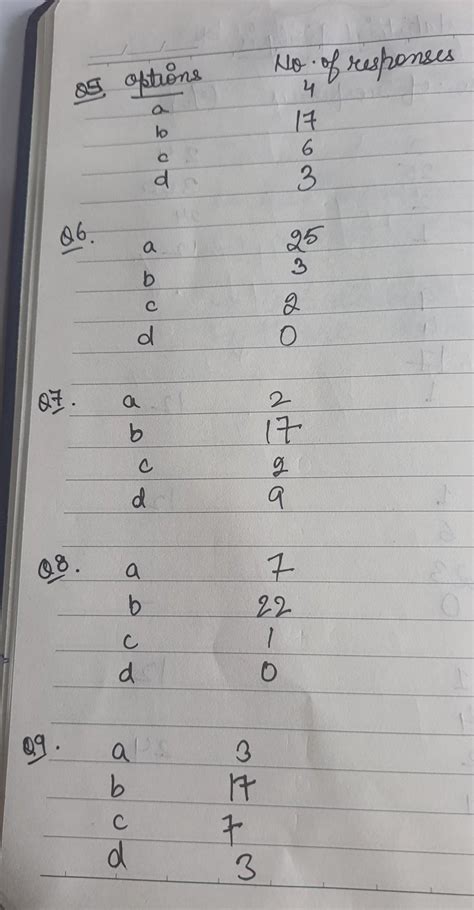 Q5 options No. of responses
a 4
b 17
c 6
d 3
Q6. a 25
b 3
c 2
d 0
Q7. a 2
b 17
c 2
d 9
Q8. a 7
b 22
c 1
d 0
Q9. a 3
b 17
c 7
d 3